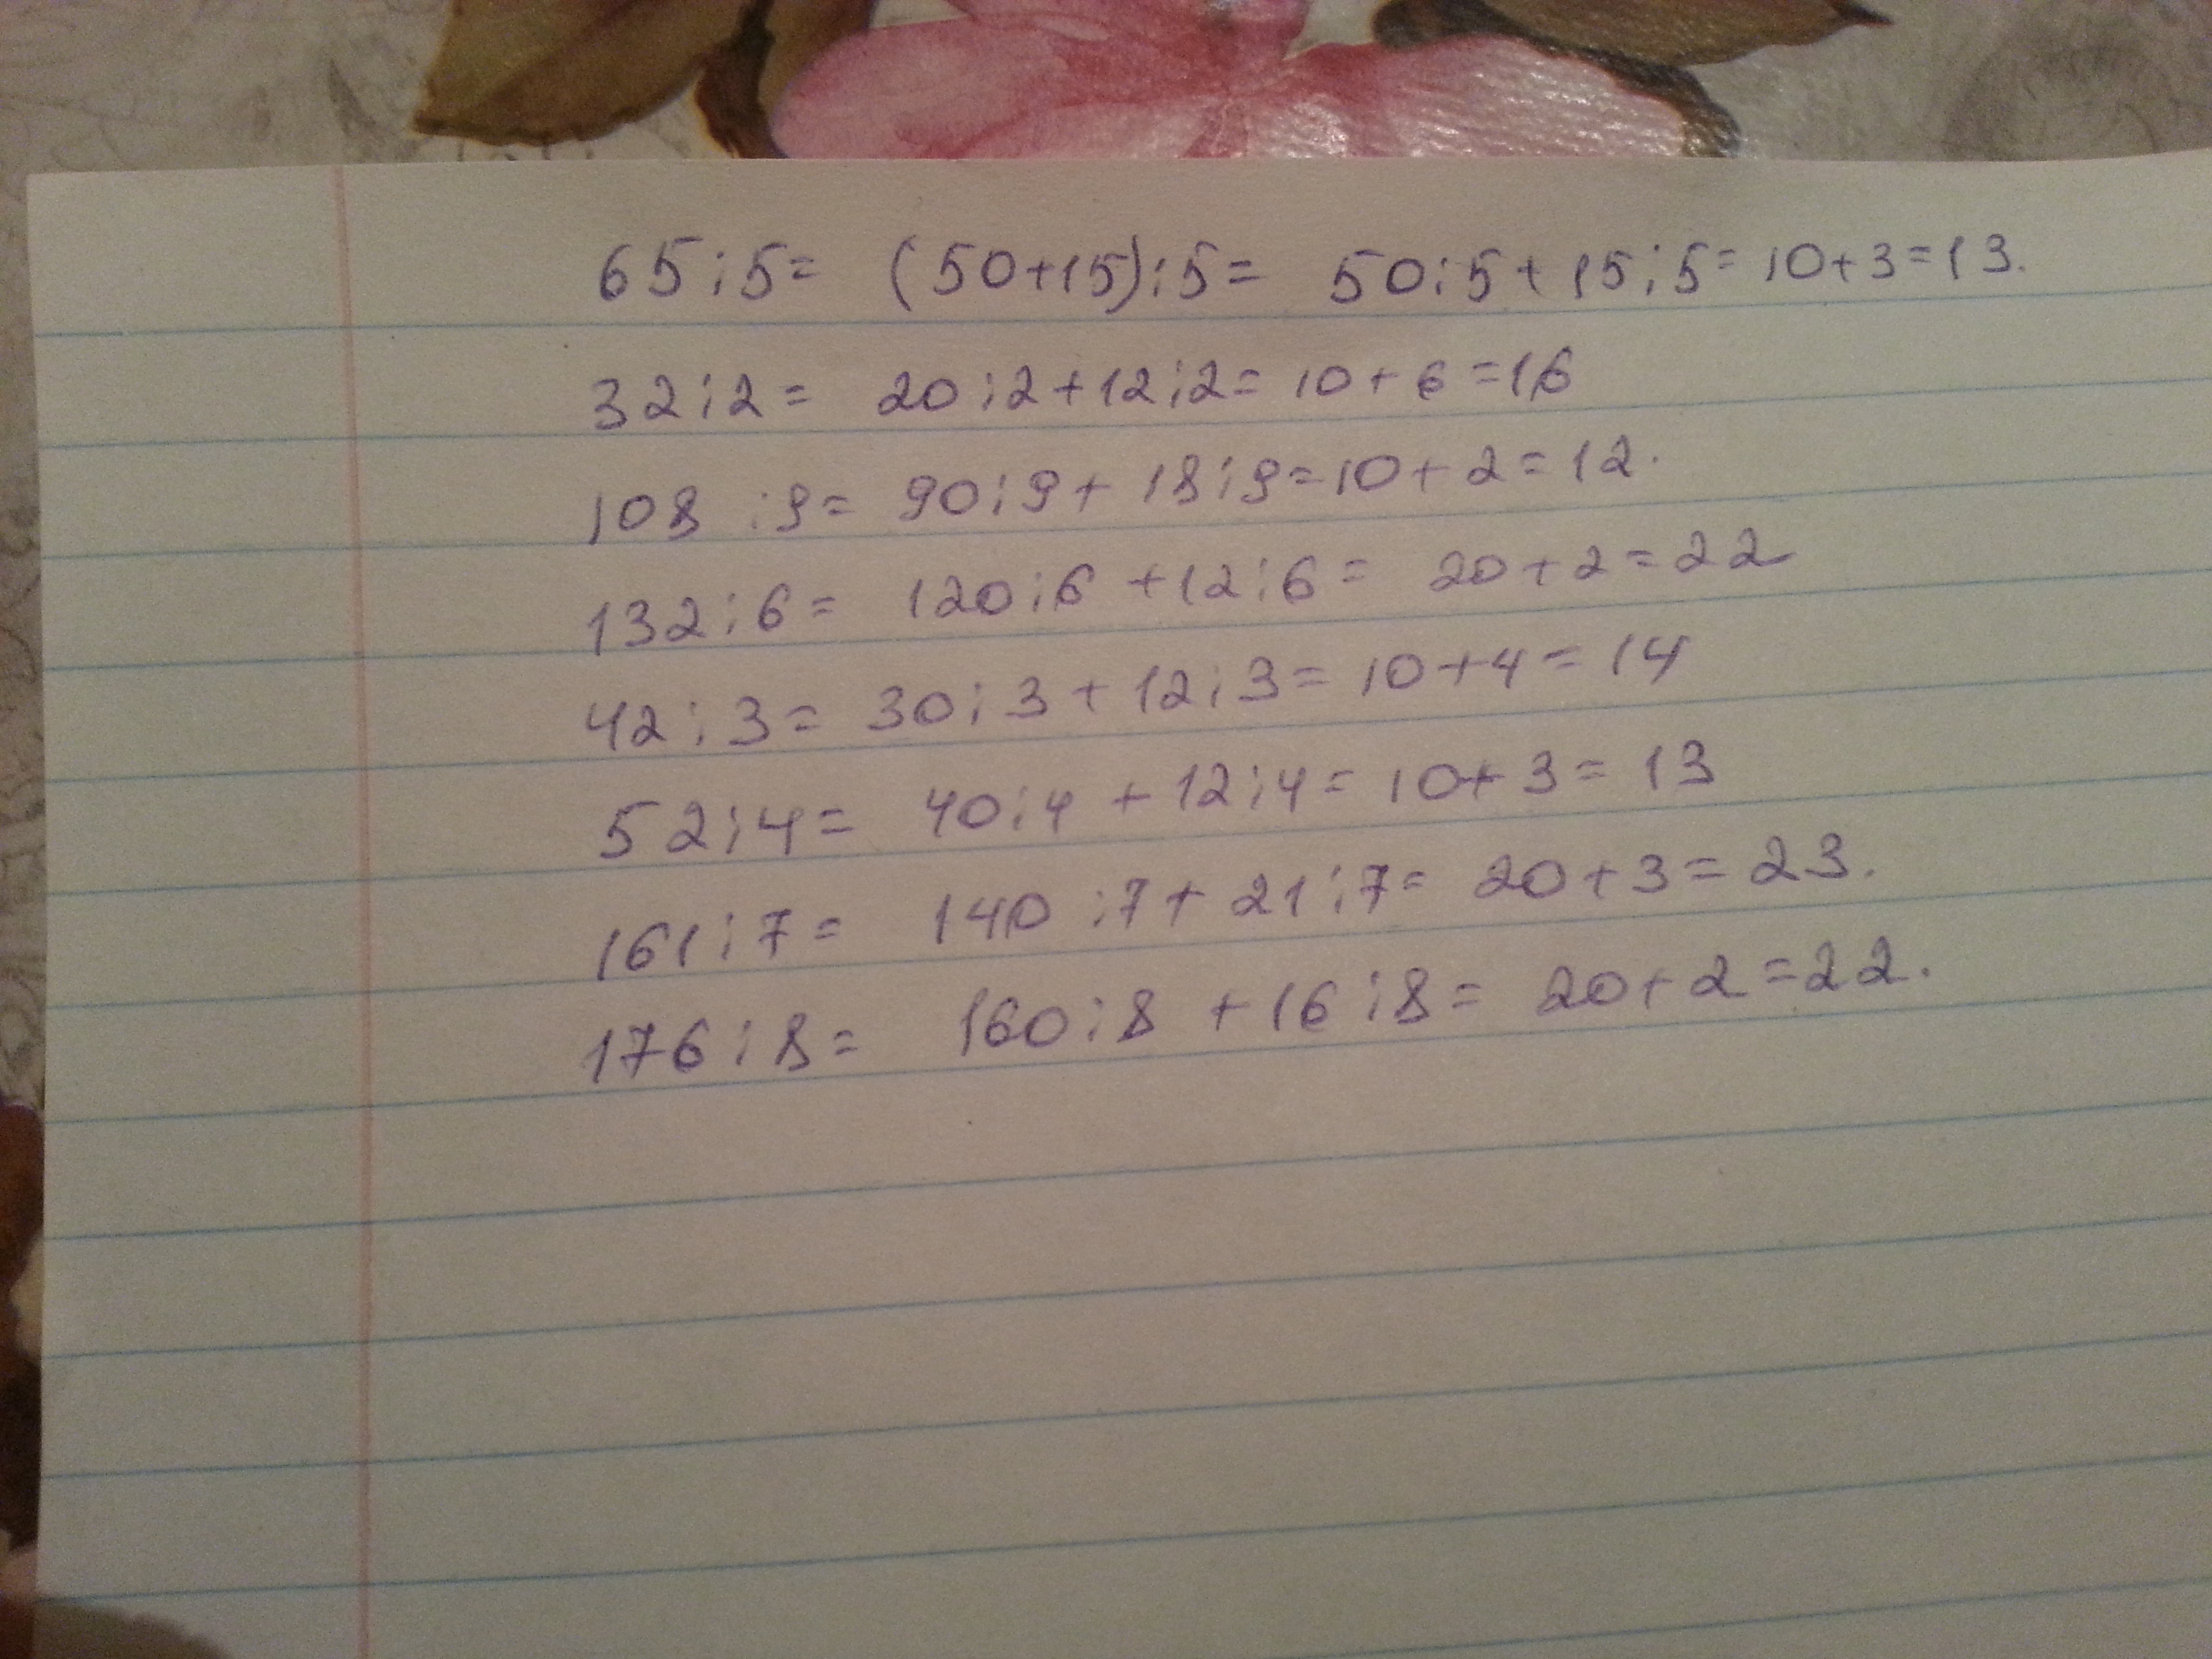 65:5= (50+15):5= 50:5+15:5=10+3=13.
32:2= 20:2+12:2=10+6=16
108 :9= 90:9+18:9=10+2=12.
132:6= 120:6+12:6= 20+2=22
42:3= 30:3+12:3= 10+4=14
52:4= 40:4+12:4= 10+3=13
161:7= 140:7+21:7= 20+3=23.
176:8= 160:8+16:8= 20+2=22.